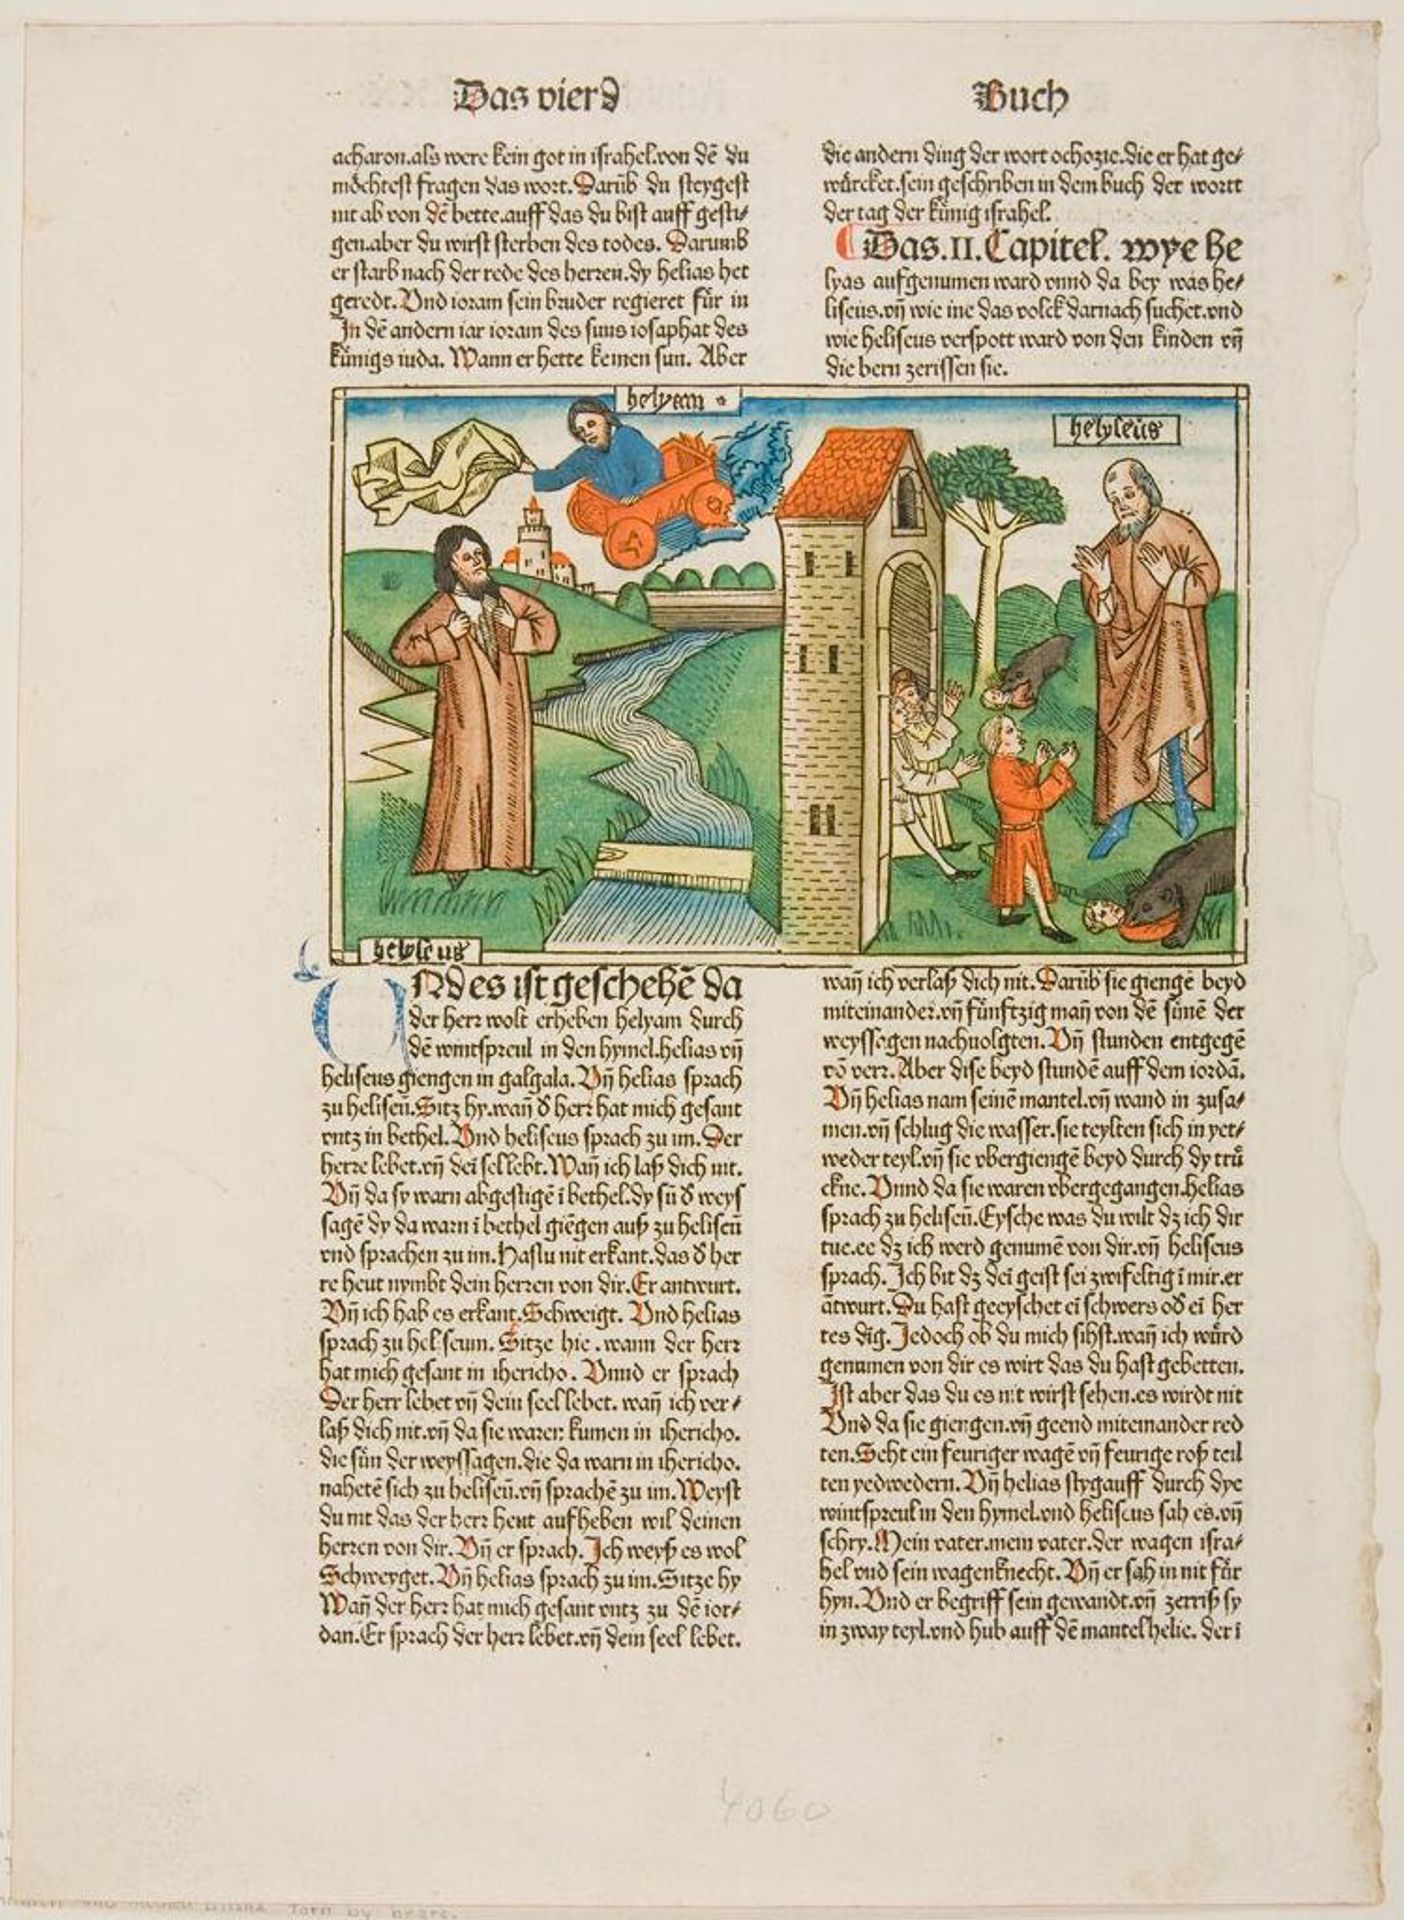 Das vierd
Buch
acharon.als were kein got in israhel.von dē du
möchtest fragen das wort.Darūb du steygest
nit ab von dē bette.auff das du bist auff gesti/
gen.aber du wirst sterben des todes. Darumb
er starb nach der rede des herren.dy helias het
geredt.Und ioram sein bruder regieret für in
In dē andern iar ioram des suns iosaphat des
künigs iuda. Wann er hette keinen sun. Aber
die andern ding der wort ochozie.die er hat ge/
würcket.sein geschriben in dem buch der wortt
der tag der künig israhel.
Das.II.Capitel. wye he
lyas aufgenumen ward vnnd da bey was he/
liseus.vñ wie ine das volck darnach suchet.vnd
wie heliseus verspott ward von den kinden vñ
die bern zerissen sie.
helyam
helyseus
helyseus
UNd es ist geschehē da
der herr wolt erheben helyam durch
dē wintspreul in den hymel.helias vñ
heliseus giengen in galgala. Vñ helias sprach
zu heliseū.Sitz hy.wañ d herr hat mich gesant
vntz in bethel. Und heliseus sprach zu im.Der
herre lebet.vñ dei sel lebt.Wañ ich laß dich nit.
Vñ da sy warn abgestigē i bethel.dy sū d weys
sagē dy da warn i bethel giēgen auß zu heliseū
vnd sprachen zu im.Hastu nit erkant.das d her
re heut nymbt dein herren von dir.Er antwurt.
Vñ ich hab es erkant.Schweigt. Und helias
sprach zu heliseum. Sitze hie.wann der herr
hat mich gesant in ihericho. Vnnd er sprach
Der herr lebet vñ dein seel lebet. wañ ich ver/
laß dich nit.vñ da sie waren kumen in ihericho.
die sün der weyssagen.die da warn in ihericho.
nahetē sich zu heliseū.vñ sprachē zu im.Weyst
du nit das der herr heut aufheben wil deinen
herren von dir. Vñ er sprach. Ich weyß es wol
Schweyget. Vñ helias sprach zu im.Sitze hy
Wañ der herr hat mich gesant vntz zu dē ior/
dan.Er sprach der herr lebet.vñ dein seel lebet.
wañ ich verlaß dich nit.Darūb sie giengē beyd
miteinander.vñ fünftzig mañ von dē sünē der
weyssagen nachuolgten. Vñ stunden entgegē
vō verr.Aber dise beyd stundē auff dem iordā.
Vñ helias nam seinē mantel.vñ wand in zusa/
men.vñ schlug die wasser.sie teylten sich in yet/
weder teyl.vñ sie vbergiengē beyd durch dy trü
ckne. Vnnd da sie waren vbergegangen.helias
sprach zu heliseū.Eysche was du wilt dz ich dir
tue.ee dz ich werd genumē von dir.vñ heliseus
sprach.Ich bit dz dei geist sei zwifeltig i mir.er
ātwurt.Du hast geeyschet ei schwers od ei her
tes dig. Jedoch ob du mich sihst.wañ ich würd
genumen von dir es wirt das du hast gebetten.
Ist aber das du es nit wirst sehen.es wirdt nit
Und da sie giengen.vñ geend miteinander red
ten.Seht ein feuriger wagē vñ feurige roß teil
ten yedwedern. Vñ helias styg auff durch dye
wintspreul in den hymel.vnd heliseus sah es.vñ
schry.Mein vater.mein vater.der wagen isra/
hel vnd sein wagenknecht. Vñ er sah in nit für
hyn. Und er begriff sein gewandt.vñ zerriß sy
in zway teyl.vnd hub auff dē mantel helie. der i
4060
Torn by bears.